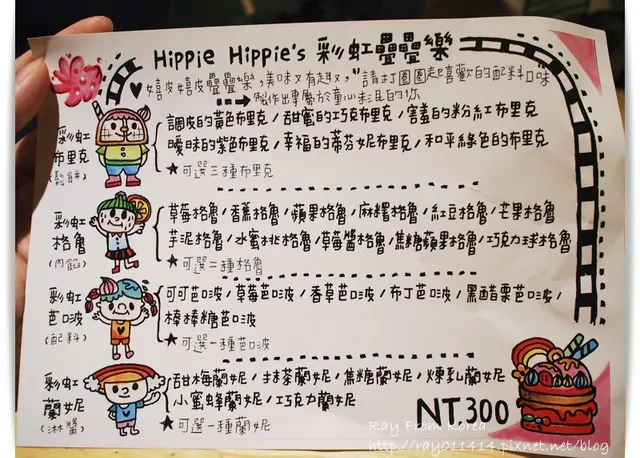 Hippie Hippie's 彩虹疊疊樂
♥嬉皮嬉皮疊疊樂,美味又有趣,"請打圈圈起喜歡的配料口味
製作出專屬於童心紅毛的你
彩虹布里克(鬆餅)
調皮的黃色布里克/甜蜜的巧克布里克/害羞的粉紅布里克
曖昧的紫色布里克/幸福的蒂芬妮布里克/和平綠色的布里克
★可選三種布里克
彩虹格魯(內餡)
草莓格魯/香蕉格魯/蘋果格魯/麻糬格魯/紅豆格魯/芒果格魯
芋泥格魯/水蜜桃格魯/草莓醬格魯/焦糖蘋果格魯/巧克力球格魯
★可選二種格魯
彩虹芭啵(配料)
可可芭啵/草莓芭啵/香草芭啵/布丁芭啵/黑醋栗芭啵/
棒棒糖芭啵
★可選一種芭啵
彩虹蘭妮(淋醬)
甜梅蘭妮/抹茶蘭妮/焦糖蘭妮/煉乳蘭妮
小蜜蜂蘭妮/巧克力蘭妮
★可選一種蘭妮
NT.300
Ray From Korea
http://ray011414.pixnet.net/blog